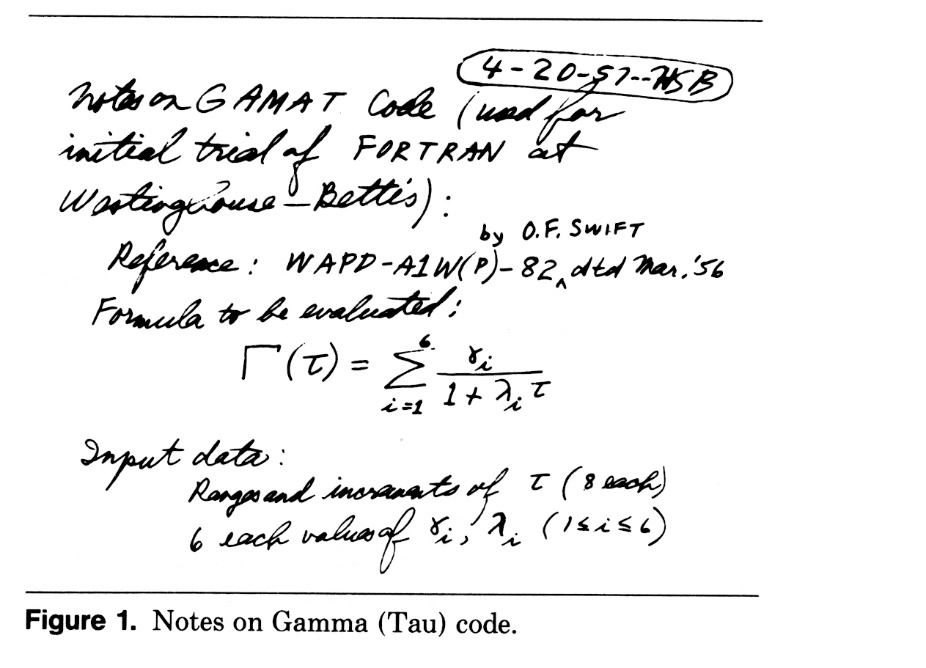 4-20-57--HSB
Notes on GAMAT Code (used for
initial trial of FORTRAN at
Westinghouse-Bettis):
by O.F. SWIFT
Reference: WAPD-A1W(P)-82,^ dtd Mar. '56
Formula to be evaluated:
Γ(τ) = Σ_{i=1}^{6} γ_i / (1 + λ_i τ)
Input data:
Ranges and increments of τ (8 each)
6 each values of γ_i, λ_i (1≤i≤6)
Figure 1. Notes on Gamma (Tau) code.